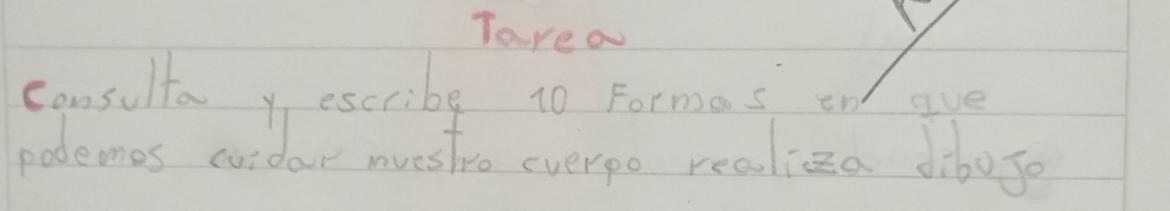 Tarea
Consulta y escribe 10 Formas en que
podemos cuidar nuestro cuerpo realiza dibujo